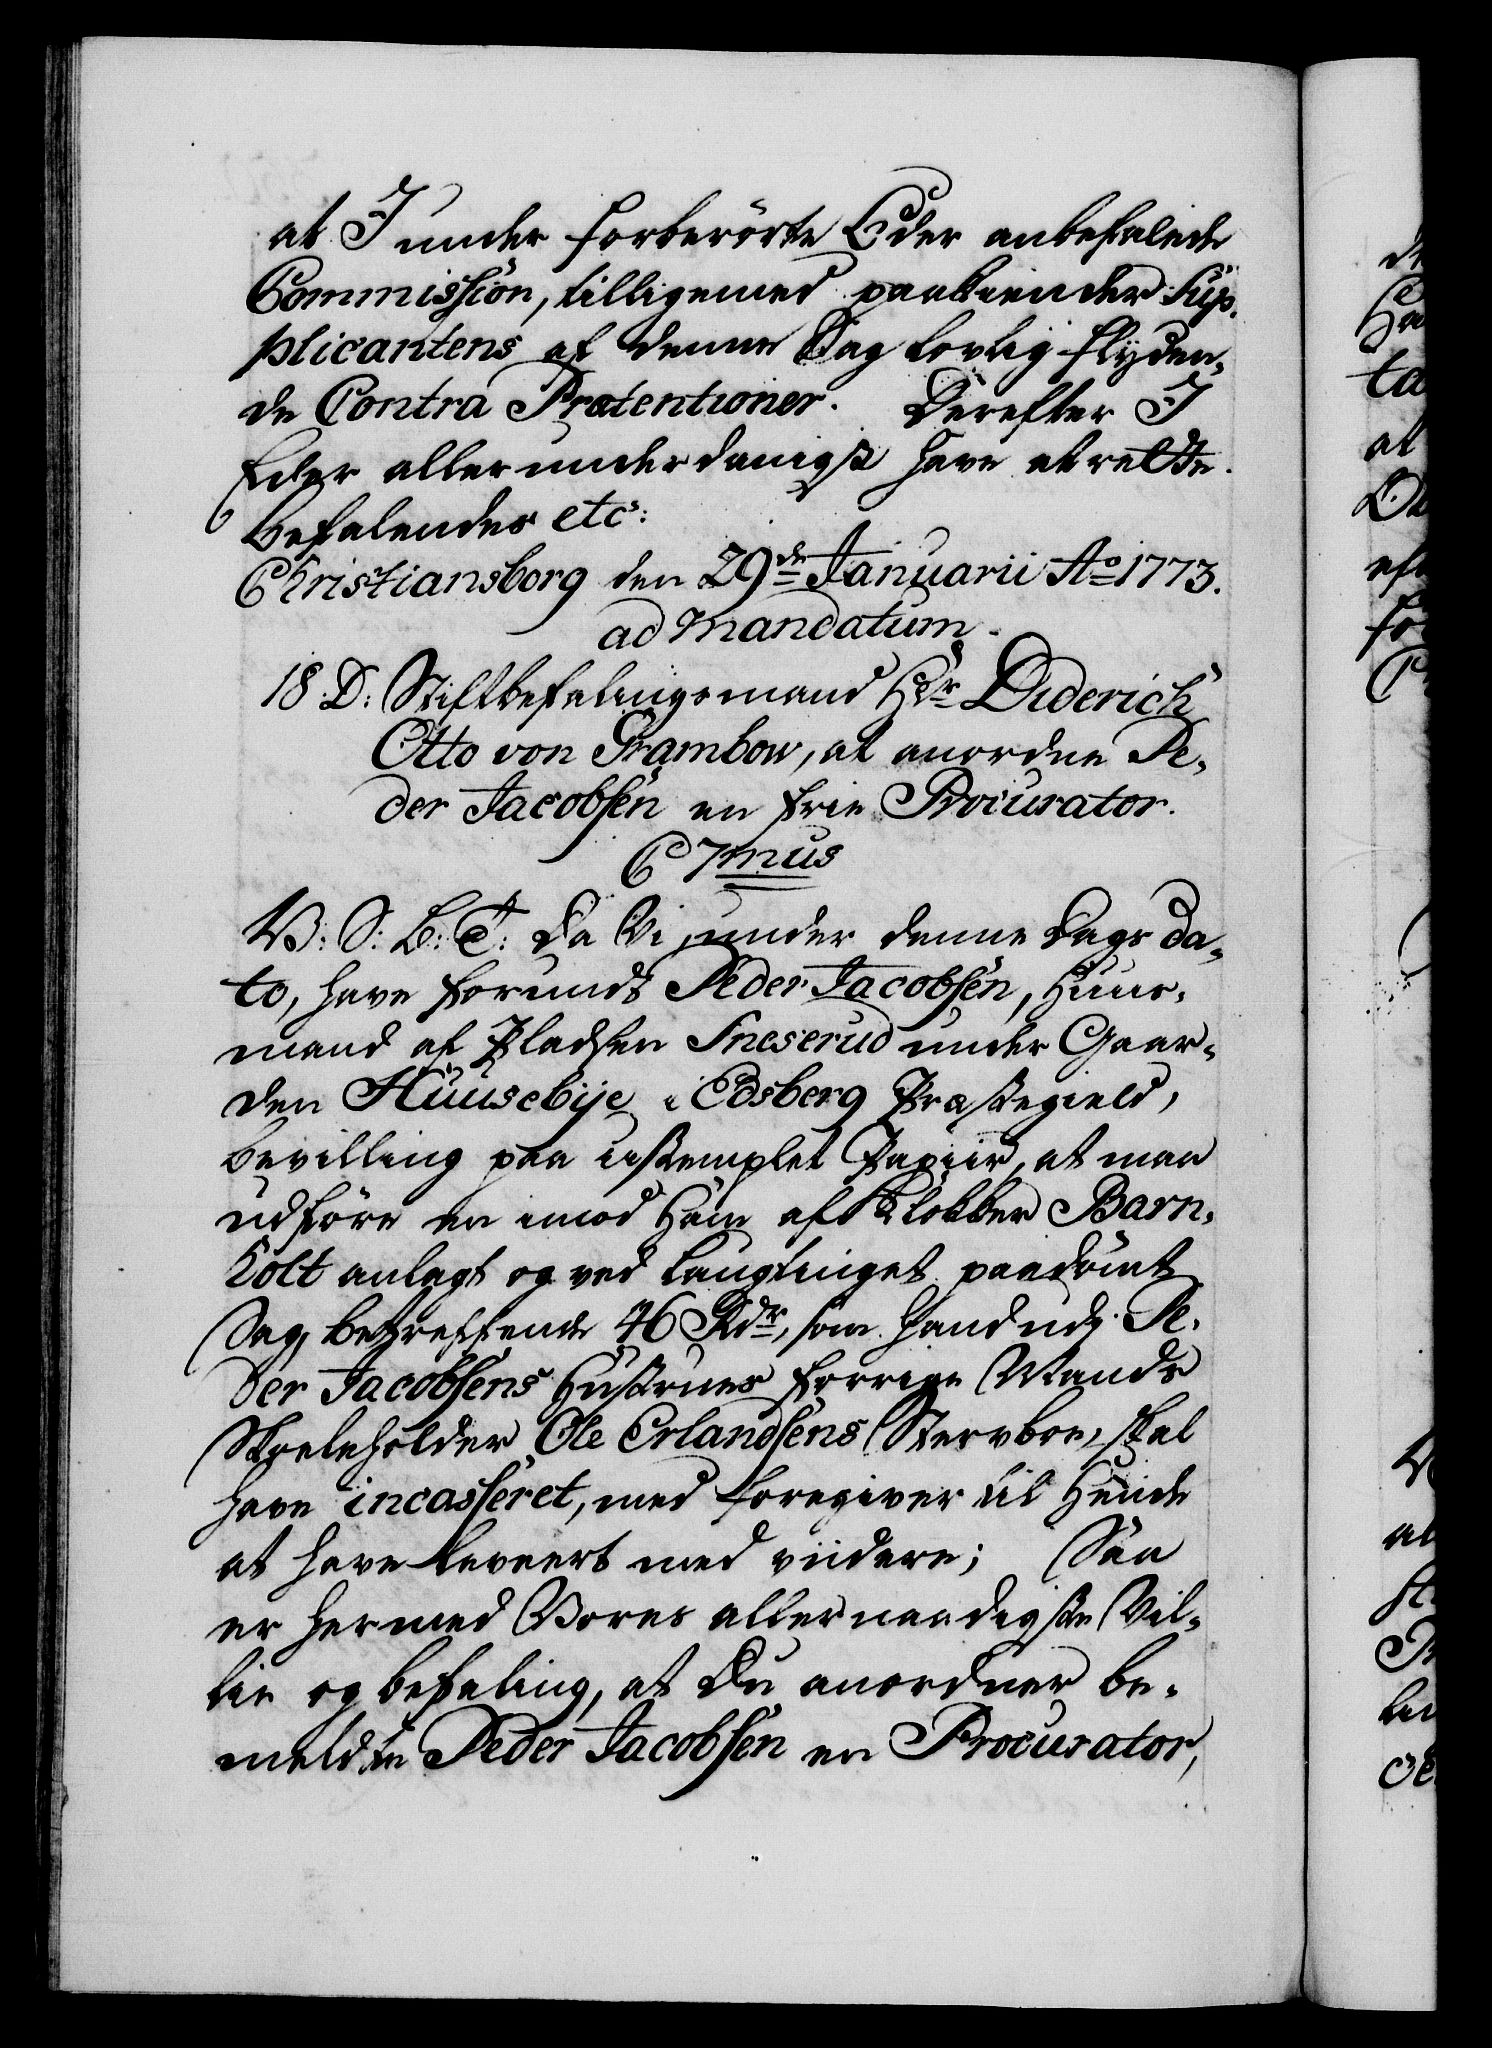 at I under forberörte Eder anbefalede
Commission, tilligemed paakiender Sup-
plicantens af denne Sag lovlig flyden-
de Contra Prætentioner. Derefter I
Eder allerunderdanigst have at rette.
Befalendes etc:
Christiansborg den 29de Januarii Ao 1773.
ad Mandatum.
18. D: Stiftbefalingsmand Hr Diderich
Otto von Grambow, at anordne Pe-
der Jacobsen en frie Procurator.
C 7mus
V: S: B: T: Da Vi, under denne Dags Da-
to, have forundt Peder Jacobsen, Huus-
mand af Pladsen Fneserud under Gaar-
den Huusebye i Edsberg Præstegield,
bevilling paa ustemplet Papiir, at maa
udføre en imod Ham af Klokker Barn-
holt anlagt og ved Laugtinget paadömt
Sag, betreffende 46 Rdr, som hand udj Pe-
der Jacobsens Hustrues forrige Mands
Skoleholder Ole Erlandsens Stervboe, skal
have incasseret, med foregivende til Hende
at have leveert med viidere; Saa
er hermed Vores allernaadigste Vil-
lie og befaling, at Du anordner be-
meldte Peder Jacobsen en Procurator,